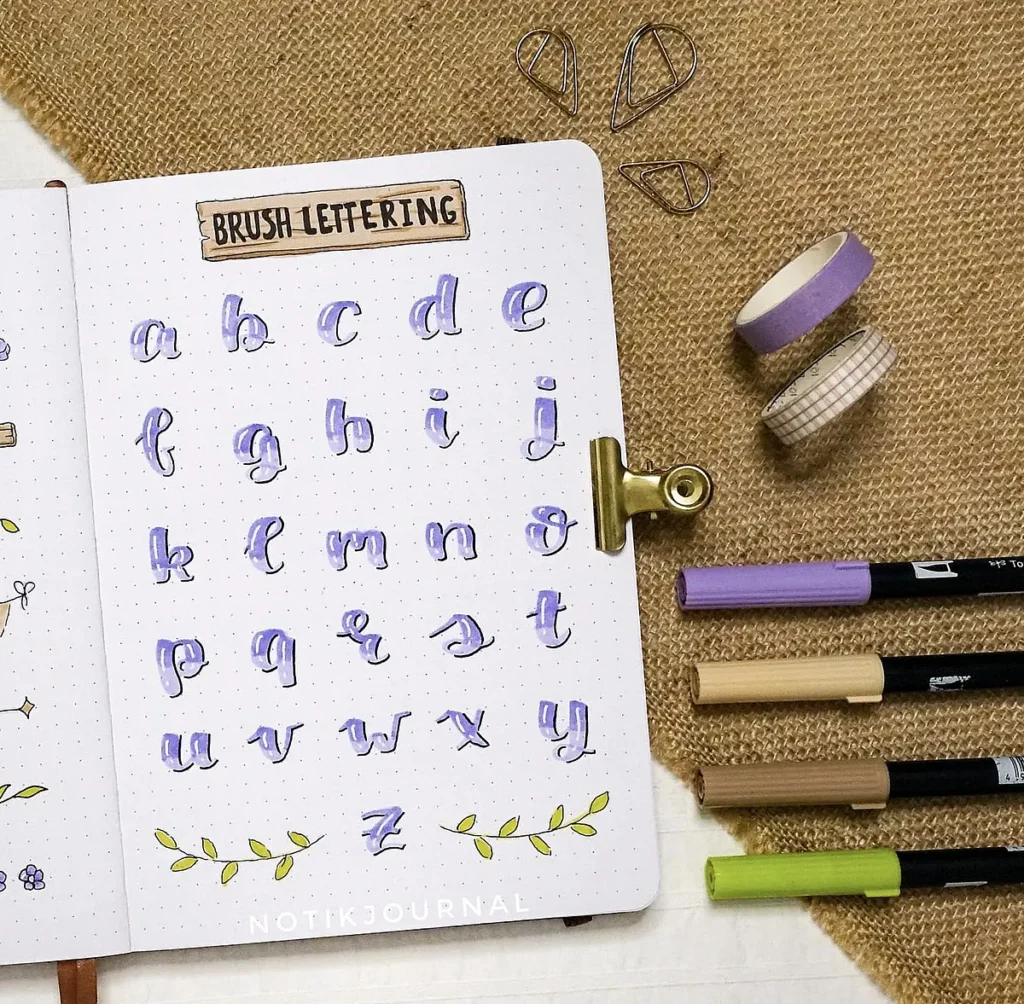 BRUSH LETTERING
a b c d e
f g h i j
k l m n o
p q r s t
u v w x y
z
NOTIKJOURNAL